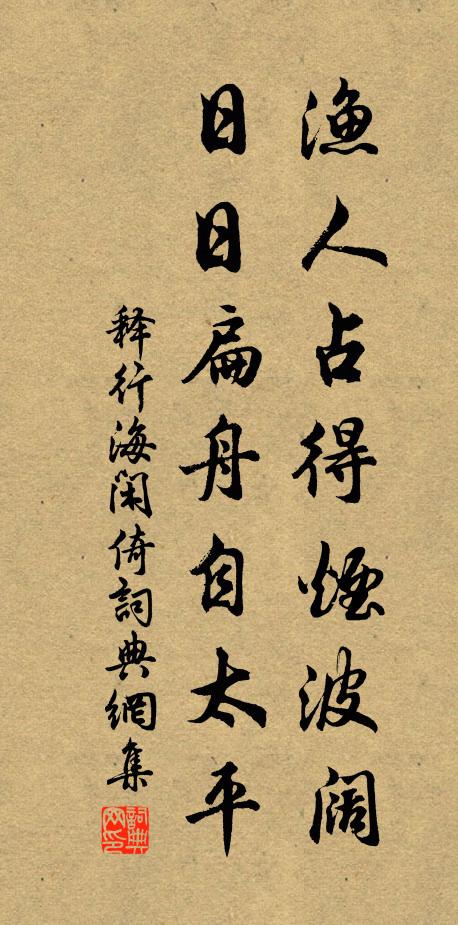 渔人占得烟波阔
日日扁舟自太平
释行海闲倚詞典網集
詞典网印